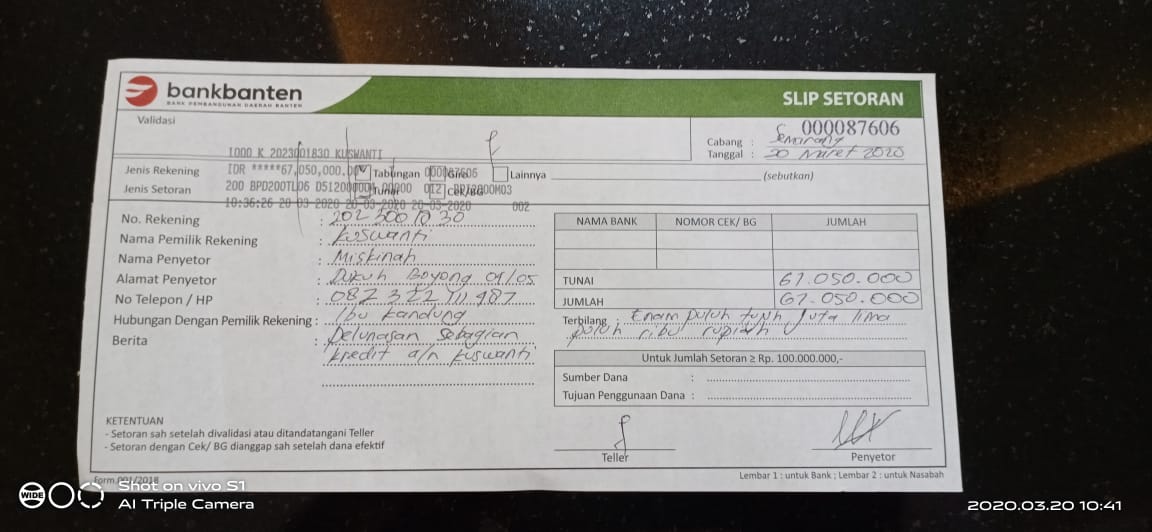 bankbanten
BANK PEMBANGUNAN DAERAH BANTEN
SLIP SETORAN
Validasi
000087606
Cabang : Semarang
Tanggal : 20 Maret 2020
1000 K 2023001830 KUSWANTI
Jenis Rekening IDR *****67,050,000.00 Tabungan Giro Lainnya (sebutkan)
Jenis Setoran 200 BPD200TL06 Tunai 012 Cek/BG
10:36:26 20-03-2020 20-03-2020 20-03-2020 002
No. Rekening :
Nama Pemilik Rekening : Kuswanti
Nama Penyetor : Miskinah
Alamat Penyetor : Dukuh Boyong 04/05
No Telepon / HP : 082 322 111 987
Hubungan Dengan Pemilik Rekening : Ibu Kandung
Berita : Pelunasan Sebagian
kredit a/n Kuswanti
NAMA BANK NOMOR CEK/ BG JUMLAH
TUNAI 67.050.000
JUMLAH 67.050.000
Terbilang : Enam puluh tujuh juta lima
puluh ribu rupiah
Untuk Jumlah Setoran ≥ Rp. 100.000.000,-
Sumber Dana :
Tujuan Penggunaan Dana :
KETENTUAN
- Setoran sah setelah divalidasi atau ditandatangani Teller
- Setoran dengan Cek/ BG dianggap sah setelah dana efektif
Teller
Penyetor
Form.001/2018
Lembar 1 : untuk Bank ; Lembar 2 : untuk Nasabah
WIDE
Shot on vivo S1
AI Triple Camera
2020.03.20 10:41